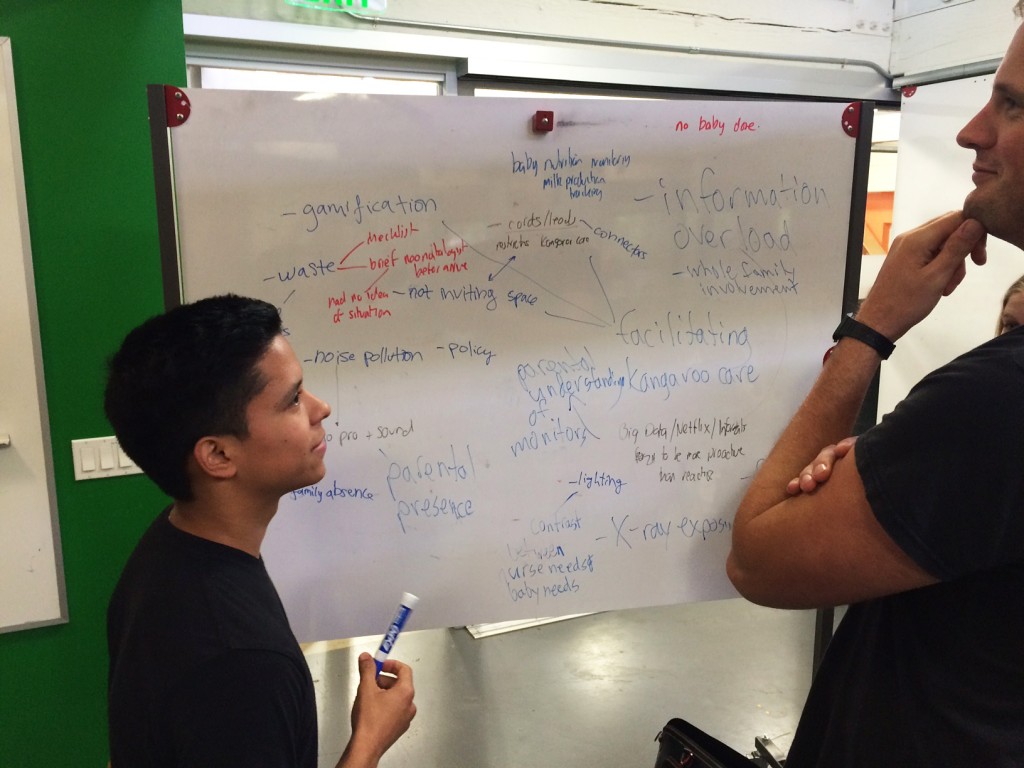 EXIT
no baby dose.
baby nutrition monitoring
milk production
tracking
- information
overload
- whole family
involvement
- gamification
- cords/leads
restricts kangaroo care
connectors
checklist
- waste
brief neonatologist
before arrive
had no idea
of situation
- not inviting space
facilitating
Kangaroo care
- noise pollution - policy
parental
understanding
of
monitors
pro + sound
Big Data/Netflix/
to be more proactive
than reactive
family absence
parental
presence
- lighting
contrast
between
nurse needs &
baby needs
- X-ray
EXPO